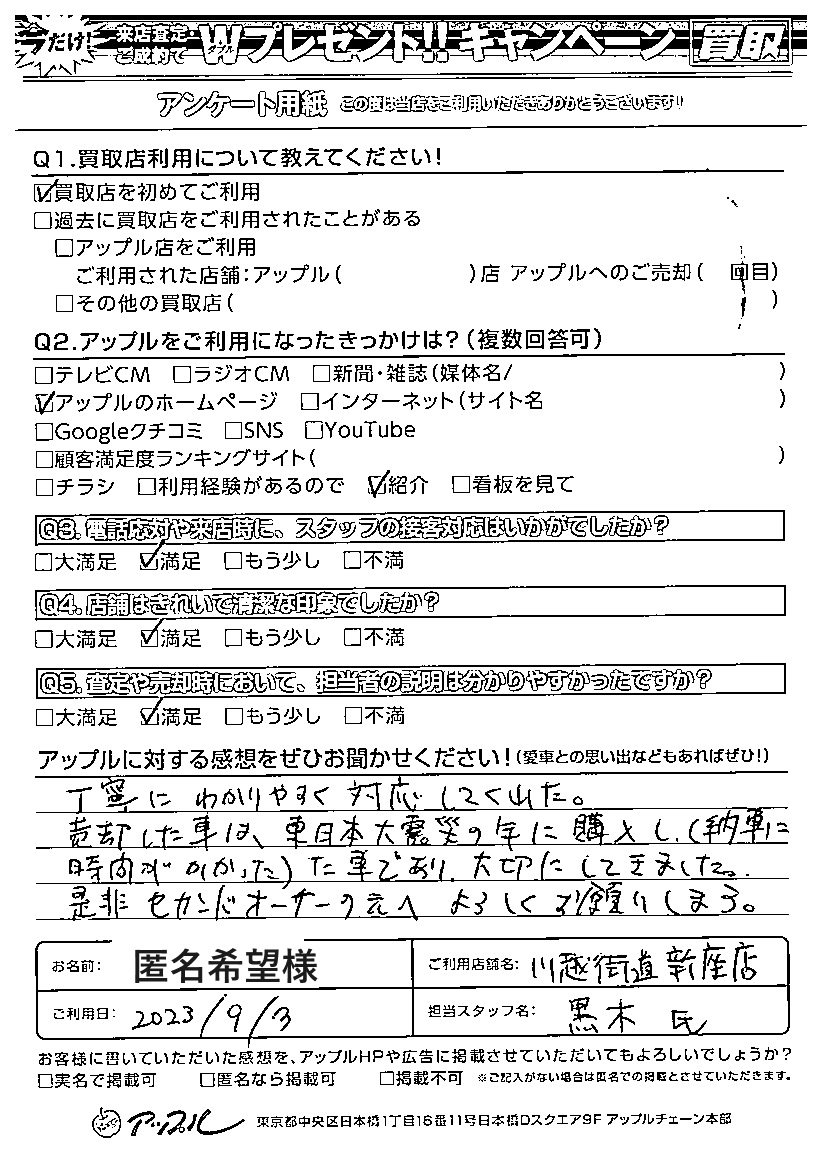 今だけ! 来店査定・ご成約で Wダブルプレゼント!! キャンペーン 買取
アンケート用紙 この度は当店をご利用いただきありがとうございます!!
Q1.買取店利用について教えてください!
☑買取店を初めてご利用
□過去に買取店をご利用されたことがある
□アップル店をご利用
ご利用された店舗:アップル( )店 アップルへのご売却( 回目)
□その他の買取店( )
Q2.アップルをご利用になったきっかけは?(複数回答可)
□テレビCM □ラジオCM □新聞・雑誌(媒体名/ )
☑アップルのホームページ □インターネット(サイト名 )
□Googleクチコミ □SNS □YouTube
□顧客満足度ランキングサイト( )
□チラシ □利用経験があるので ☑紹介 □看板を見て
Q3.電話応対や来店時に、スタッフの接客対応はいかがでしたか?
□大満足 ☑満足 □もう少し □不満
Q4.店舗はきれいで清潔な印象でしたか?
□大満足 ☑満足 □もう少し □不満
Q5.査定や売却時において、担当者の説明は分かりやすかったですか?
□大満足 ☑満足 □もう少し □不満
アップルに対する感想をぜひお聞かせください!(愛車との思い出などもあればぜひ!)
丁寧に わかりやすく 対応してくれた。
売却した車は、東日本大震災の年に購入し、(納車に
時間がかかった)た車であり、大切にしてきました。
是非 セカンドオーナーの元へ よろしくお願いします。
お名前: 匿名希望様 ご利用店舗名: 川越街道新座店
ご利用日: 2023/9/3 担当スタッフ名: 黒木 氏
お客様に書いていただいた感想を、アップルHPや広告に掲載させていただいてもよろしいでしょうか?
□実名で掲載可 □匿名なら掲載可 □掲載不可 ※ご記入がない場合は匿名での掲載とさせていただきます。
アップル 東京都中央区日本橋1丁目16番11号日本橋Dスクエア9F アップルチェーン本部